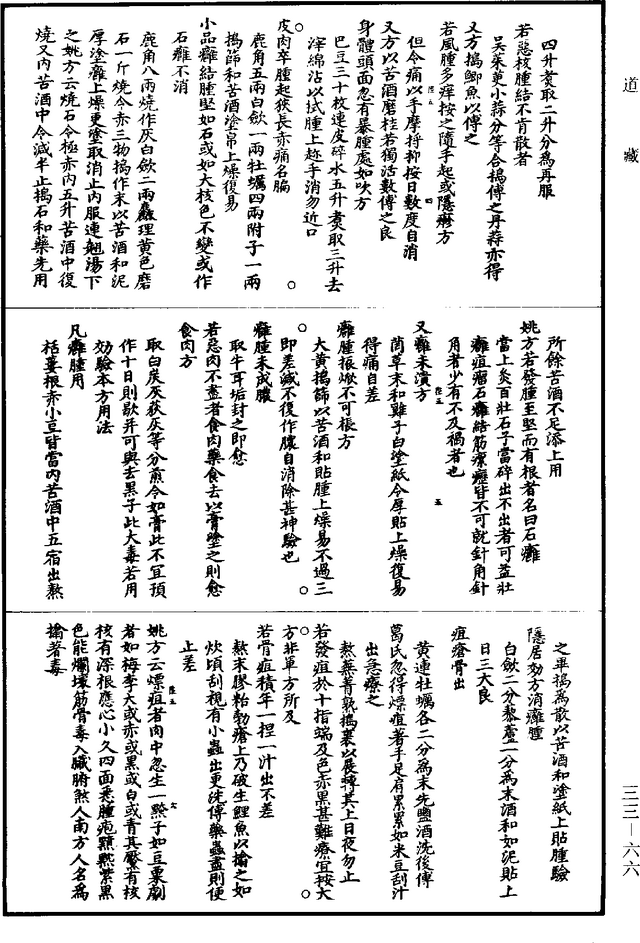 道藏
四升煮取二升分為再服
若惡核腫結不肯散者
吴茱萸小蒜分等合搗傅之丹蒜亦得
又方搗鯽魚以傅之
若風腫多痒按之隨手起或隱㾦方
但令痛以手摩捋抑按日數度自消
又方以苦酒磨桂若獨活數傅之良
身體頭面忽有暴腫處如吹方
巴豆三十枚連皮碎水五升煮取三升去
滓綿沾以拭腫上趂手消勿近口
皮肉卒腫起狹長赤痛名㾐
鹿角五兩白歛一兩牡蠣四兩附子一兩
搗篩和苦酒塗帛上燥復易
小品癰結腫堅如石或如大核色不變或作
石癰不消
鹿角八兩燒作灰白歛二兩麤理黄色磨
石一斤燒令赤三物搗作末以苦酒和泥
厚塗癰上燥更塗取消止内服連翹湯下
之姚方云燒石令極赤内五升苦酒中復
燒又内苦酒中令減半止搗石和藥先用
所餘苦酒不足添上用
姚方若發腫至堅而有根者名曰石癰
當上灸百壯石子當碎出不出者可益壯
癰疽瘤石癰結筋瘰癧皆不可就針角針
角者少有不及禍者也
又癰未潰方
䓪草末和雞子白塗紙令厚貼上燥復易
得痛自差
癰腫振焮不可棖方
大黄搗篩以苦酒和貼腫上燥易不過三
即差減不復作膿自消除甚神驗也
癰腫未成膿
取牛耳垢封之即愈
若惡肉不盡者食肉藥食去以膏塗之則愈
食肉方
取白炭灰荻灰等分煎令如膏此不宜預
作十日則歇并可與去黑子此大毒若用
効驗本方用法
凡癰腫用
栝蔞根赤小豆皆當内苦酒中五宿出熬
之畢搗為散以苦酒和塗紙上貼腫驗
隱居効方消癰腫
白歛二分藜蘆一分為末酒和如泥貼上
日三大良
疽瘡骨出
黄連牡蠣各二分為末先鹽酒洗後傅
葛氏忽得熛疽著手足肩累累如米豆刮汁
出急療之
熬蕪菁熟搗裹以展轉其上日夜勿止
若發疽於十指端及色赤黑甚難療宜按大
方非單方所及
若骨疽積年一捏一汁出不差
熬末膠粘勃瘡上乃破生鯉魚以搶之如
炊頃刮視有小蟲出更洗傅藥蟲盡則便
止差
姚方云熛疽者肉中忽生一黶子如豆粟劇
者如梅李大或赤或黑或白或青其黶有核
核有深根應心小久四面悉腫疱黯黕紫黑
色能爛壞筋骨毒入臟腑煞人南方人名為
搶著毒
三三—六六